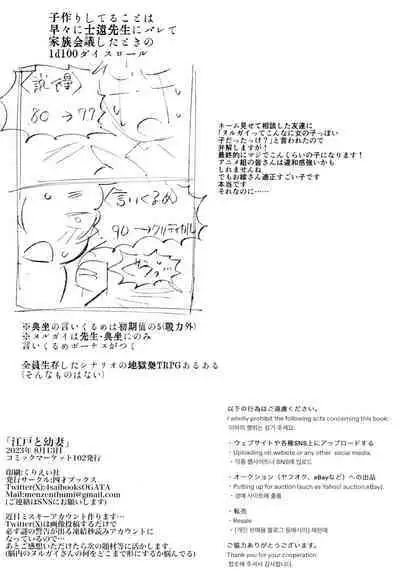 子作りしてることは
早々に士遠先生にバレて
家族会議したときの
1d100ダイスロール
説得
80→77
言いくるめ
90→クリティカル
ネーム見せて相談した友達に
「ヌルガイってこんなに女の子っぽい
子だったっけ?」と言われたので
弁解しますが!
最終的にマジでこんくらいの子になります!
アニメ組の皆さんは違和感強いかも
しれませんね
でもお嫁さん適正すごい子です
本当です
それなのに……
※典坐の言いくるめは初期値の5(戦力外)
※ヌルガイは先生・典坐にのみ
言いくるめボーナスがつく
全員生存したシナリオの地獄楽TRPGあるある
(そんなものはない)
「江戸と幼妻」
2023年 8月13日
コミックマーケット102発行
印刷:くりえい社
発行サークル:四才ブックス
Twitter(X):4saibooksOGATA
Mail:menzenthumi@gmail.com
(ご連絡はSNSにお願いします)
近日ミスキーアカウント作ります…
Twitter(X)は画像投稿するだけで
必ず謎の警告が出る凍結秒読みアカウント
になっているので…
あとご感想いただけたら次の題材等に活かします。
(脳内のヌルガイさんの何をどこまで形にするか悩んでる)
以下の行為はご遠慮ください。
I wholly prohibit the following acts concerning this book.
이하의 행위는 삼가 주세요.
・ウェブサイトや各種SNS上にアップロードする
- Uploading on website or any other social media.
- 각종 웹사이트나 SNS에 업로드
・オークション(ヤフオク、eBayなど)への出品
- Putting up for auction (such as Yahoo! auction,eBay).
- 경매 사이트에 출품
・転売
- Resale
- (개인 판매용 블로그 등에서의) 재판매
ご協力ありがとうございます。
Thank you for your cooperation
협조해 주셔서 감사합니다.